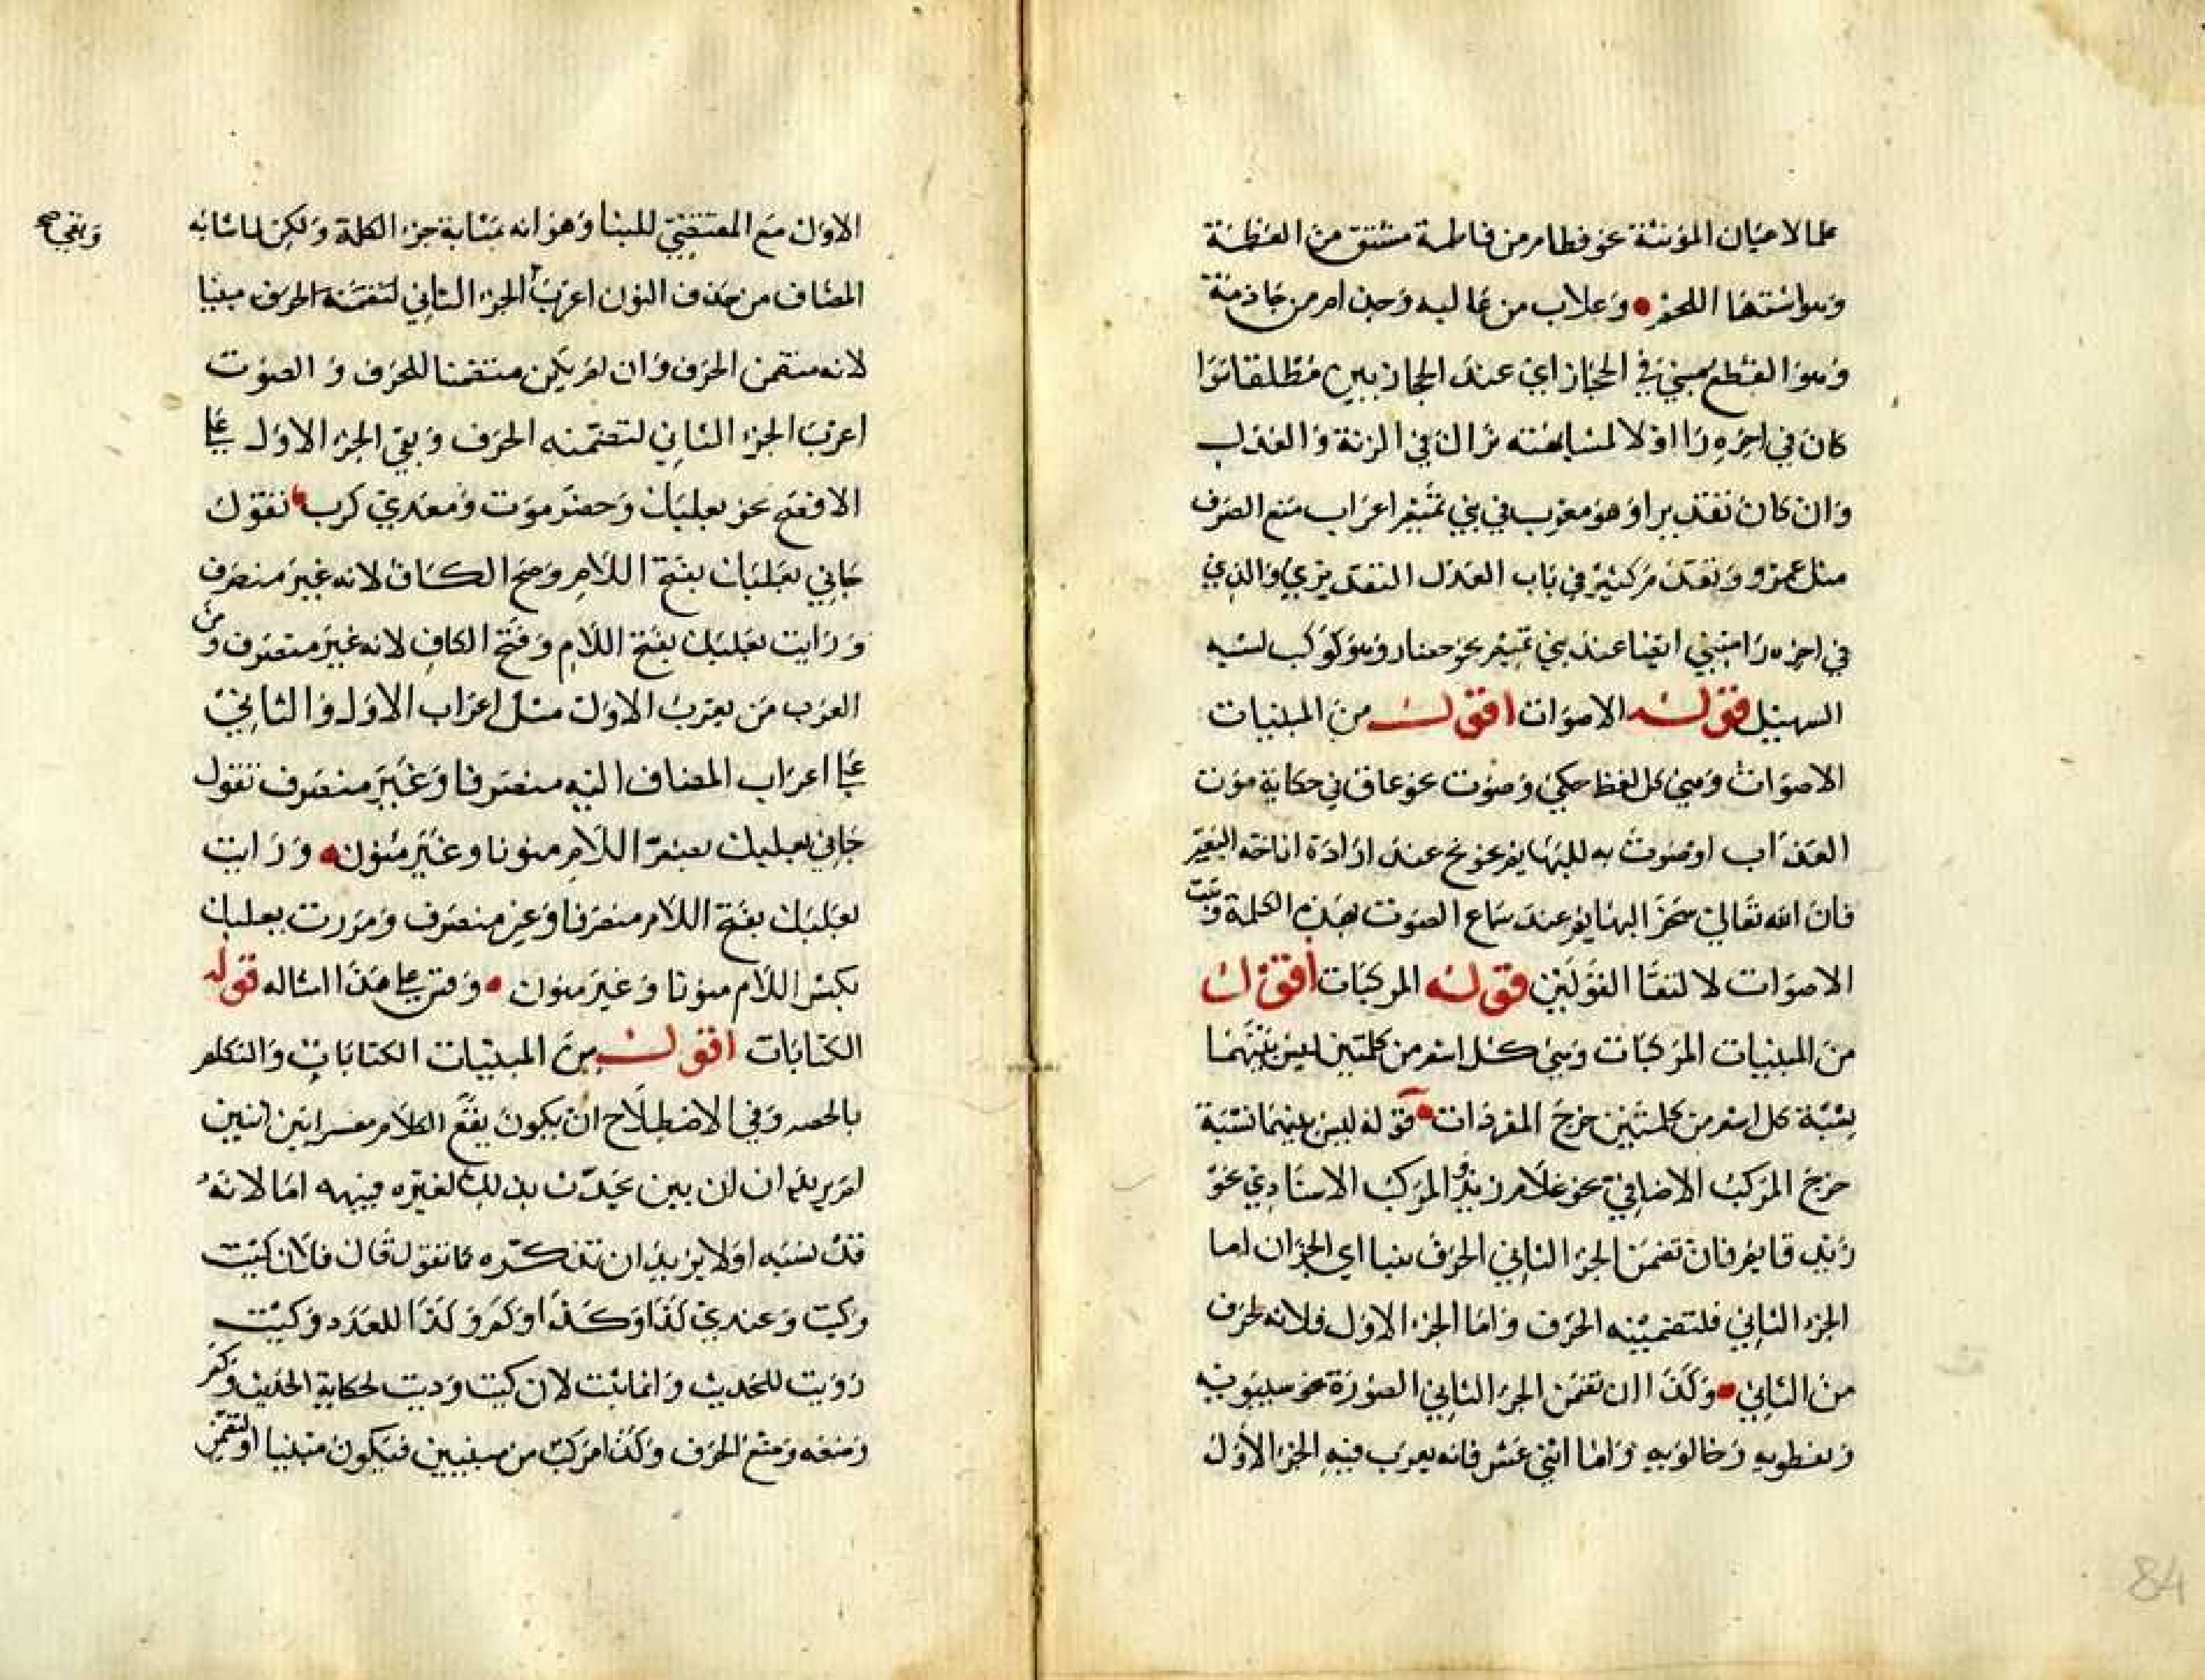 علما لاعيان المؤنثة نحو فطام من فاطمة مشتق من الفطمة
وهو اشتها اللحم وغلاب من غالبه وحذام من جاذمة
وهو القطع مبني في الحجاز اي عند الحجازيين مطلقا سوا
كان في اخره را او لا لمشابهته نزال في الزنة والعدل
وان كان تقديرا وهو معرب في بني تميم اعراب منع الصرف
مثل عمرو وتقدم ركثير في باب العدل التقديري والذي
في اخره را مبني ايضا عند بني تميم نحو حضار وهو كوكب لشبه
السهيل قوله الاصوات اقول من المبنيات
الاصوات وهي كل لفظ حكي وصوت نحو غاق في حكاية صوت
الغداب او صوت به للبهايم نحو نخ عند ارادة اناخة البعير
فان الله تعالى سخر البهايم عند سماع الصوت بهذه الكلمة وبنيت
الاصوات لالتقا القولين قوله المركبات اقول
من المبنيات المركبات وهي كل اسم من كلمتين ليس بينهما
نسبة كل اسم من كلمتين خرج المفردات قوله ليس بينهما نسبة
خرج المركب الاضافي نحو غلام زيد والمركب الاسنادي نحو
زيد قايم فان تضمن الجزا الثاني الحرف بنيا اي الجزان اما
الجزء الثاني فلتضمينه الحرف واما الجزء الاول فلانه كحرف
من الثاني وكذا ان تضمن الجزا الثاني الصورة نحو سيبويه
ونفطويه وخالويه واما اثني عشر فانه يعرب فيه الجزء الاول
الاول مع المقتضي للبنا وهو انه بمثابة جزء الكلمة ولكن لما شابه
المضاف من حذف النون اعرب الجزء الثاني لتضمنه الحرف مبنيا
وبقي صح
لانه متضمن الحرف وان لم يكن متضمنا للحرف و الصوت
اعرب الجزء الثاني لتضمنه الحرف وبقي الجزء الاول على
الافصح نحو بعلبك وحضرموت ومعدي كرب تقول
جاني بعلبك بفتح اللام وضم الكاف لانه غير منصرف
ورايت بعلبك بفتح اللام وفتح الكاف لانه غير منصرف ومن
العرب من يعرب الاول مثل اعراب الاول والثاني
على اعراب المضاف اليه منصرفا وغير منصرف تقول
جاني بعلبك بضم اللام منونا وغير منون ورايت
بعلبك بفتح اللام منصرفا وغير منصرف ومررت ببعلبك
بكسر اللام منونا وغير منون وقس على هذا امثاله قوله
الكنايات اقول من المبنيات الكنايات والتكلم
بالحصه وفي الاصطلاح ان يكون يقع الكلام مفسرا بين اثنين
لم يريد ان ان بين يحدث بذلك لغيره فيبهه اما لانه
قد نسيه او لا يريد ان تذكره كما تقول قال فلان كيت
وكيت وعندي كذا وكذا وكم وكذا للعدد وكيت
وذيت للحديث وانما بنيت لان كيت وذيت لحكاية الحديث وكم
وضعه وضع الحرف وكذا مركب من مبنيين فيكون مبنيا او لتضمن
84